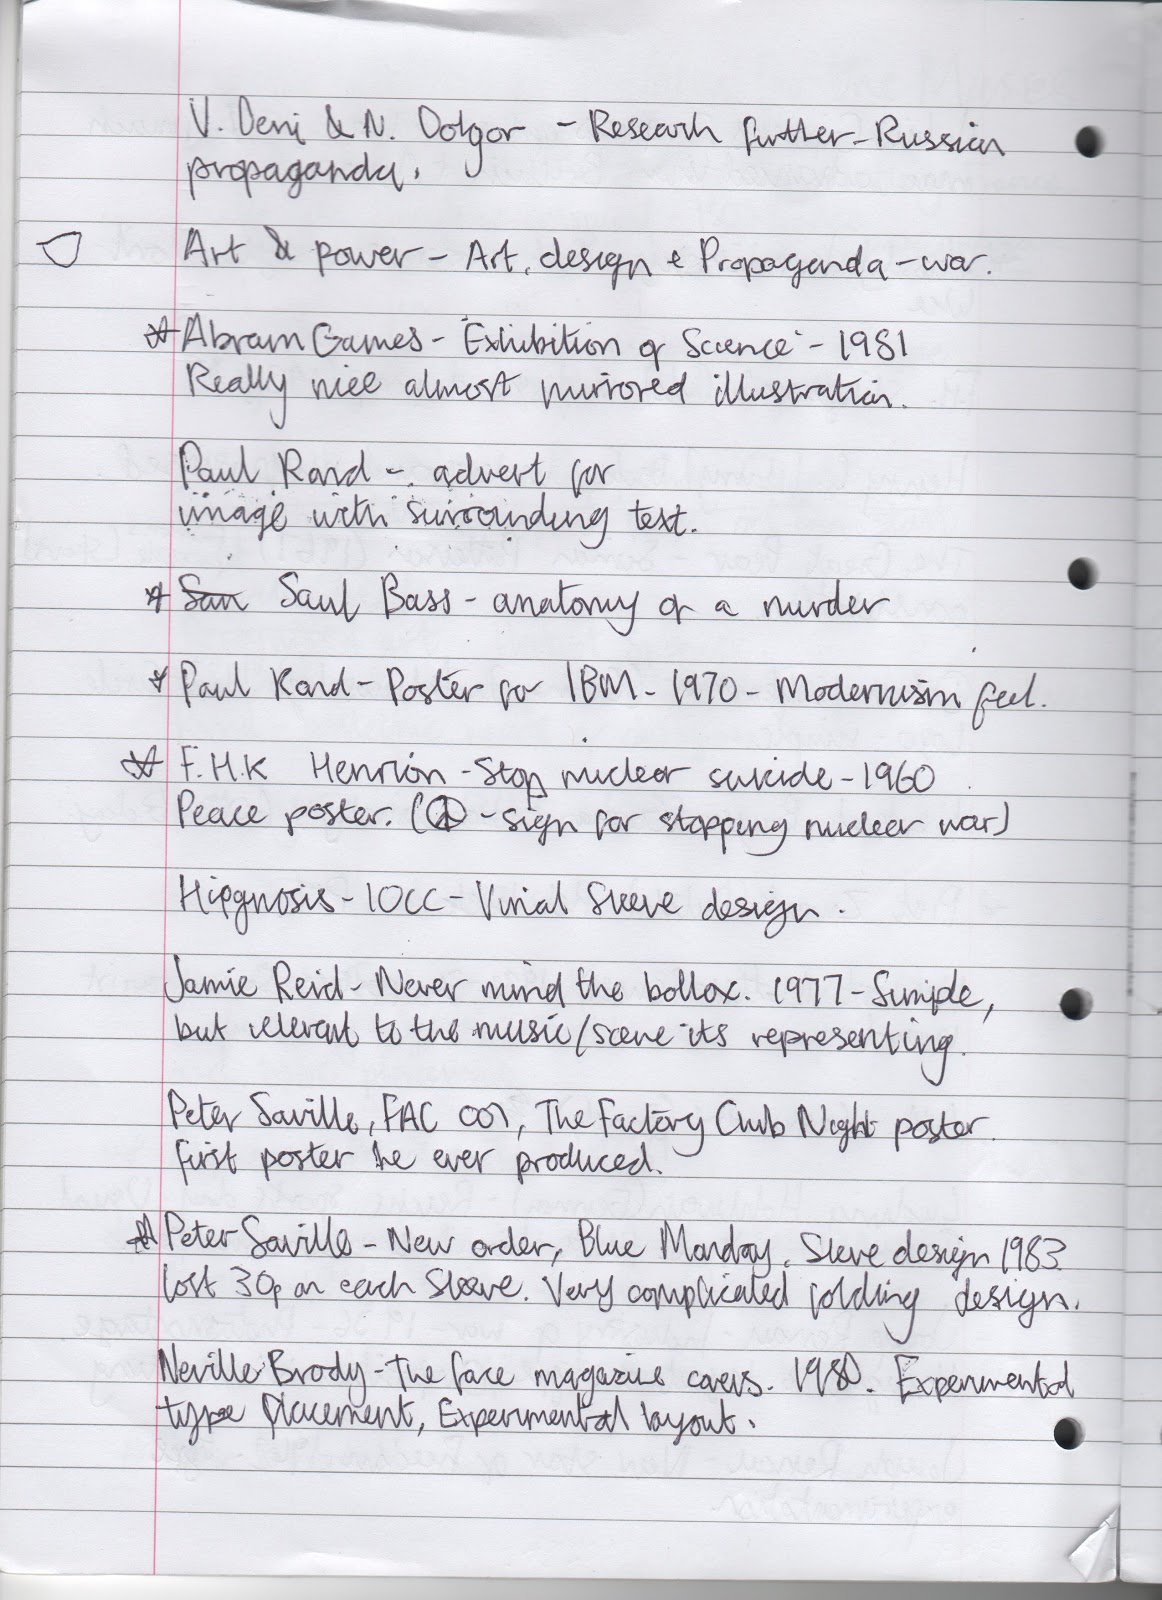 V. Deni & N. Dolgor - Research further - Russian
propaganda.
Art & power - Art, design & Propaganda - war.
Abram Games - 'Exhibition of Science' - 1981
Really nice almost mirrored illustration.
Paul Rand - advert for
image with surrounding text.
Sau Saul Bass - anatomy of a murder
Paul Rand - Poster for IBM - 1970 - Modernism feel.
F.H.K Henrion - Stop nuclear suicide - 1960
Peace poster. (☮ - sign for stopping nuclear war)
Hipgnosis - 10CC - Vinial Sleeve design.
Jamie Reid - Never mind the bollox. 1977 - Simple,
but relevant to the music/scene its representing.
Peter Saville, FAC 001, The Factory Club Night poster.
first poster he ever produced.
Peter Saville - New order, Blue Monday, Sleeve design 1983
lost 30p on each Sleeve. Very complicated folding design.
Neville Brody - the face magazine covers. 1980. Experimental
type placement, Experimental layout.